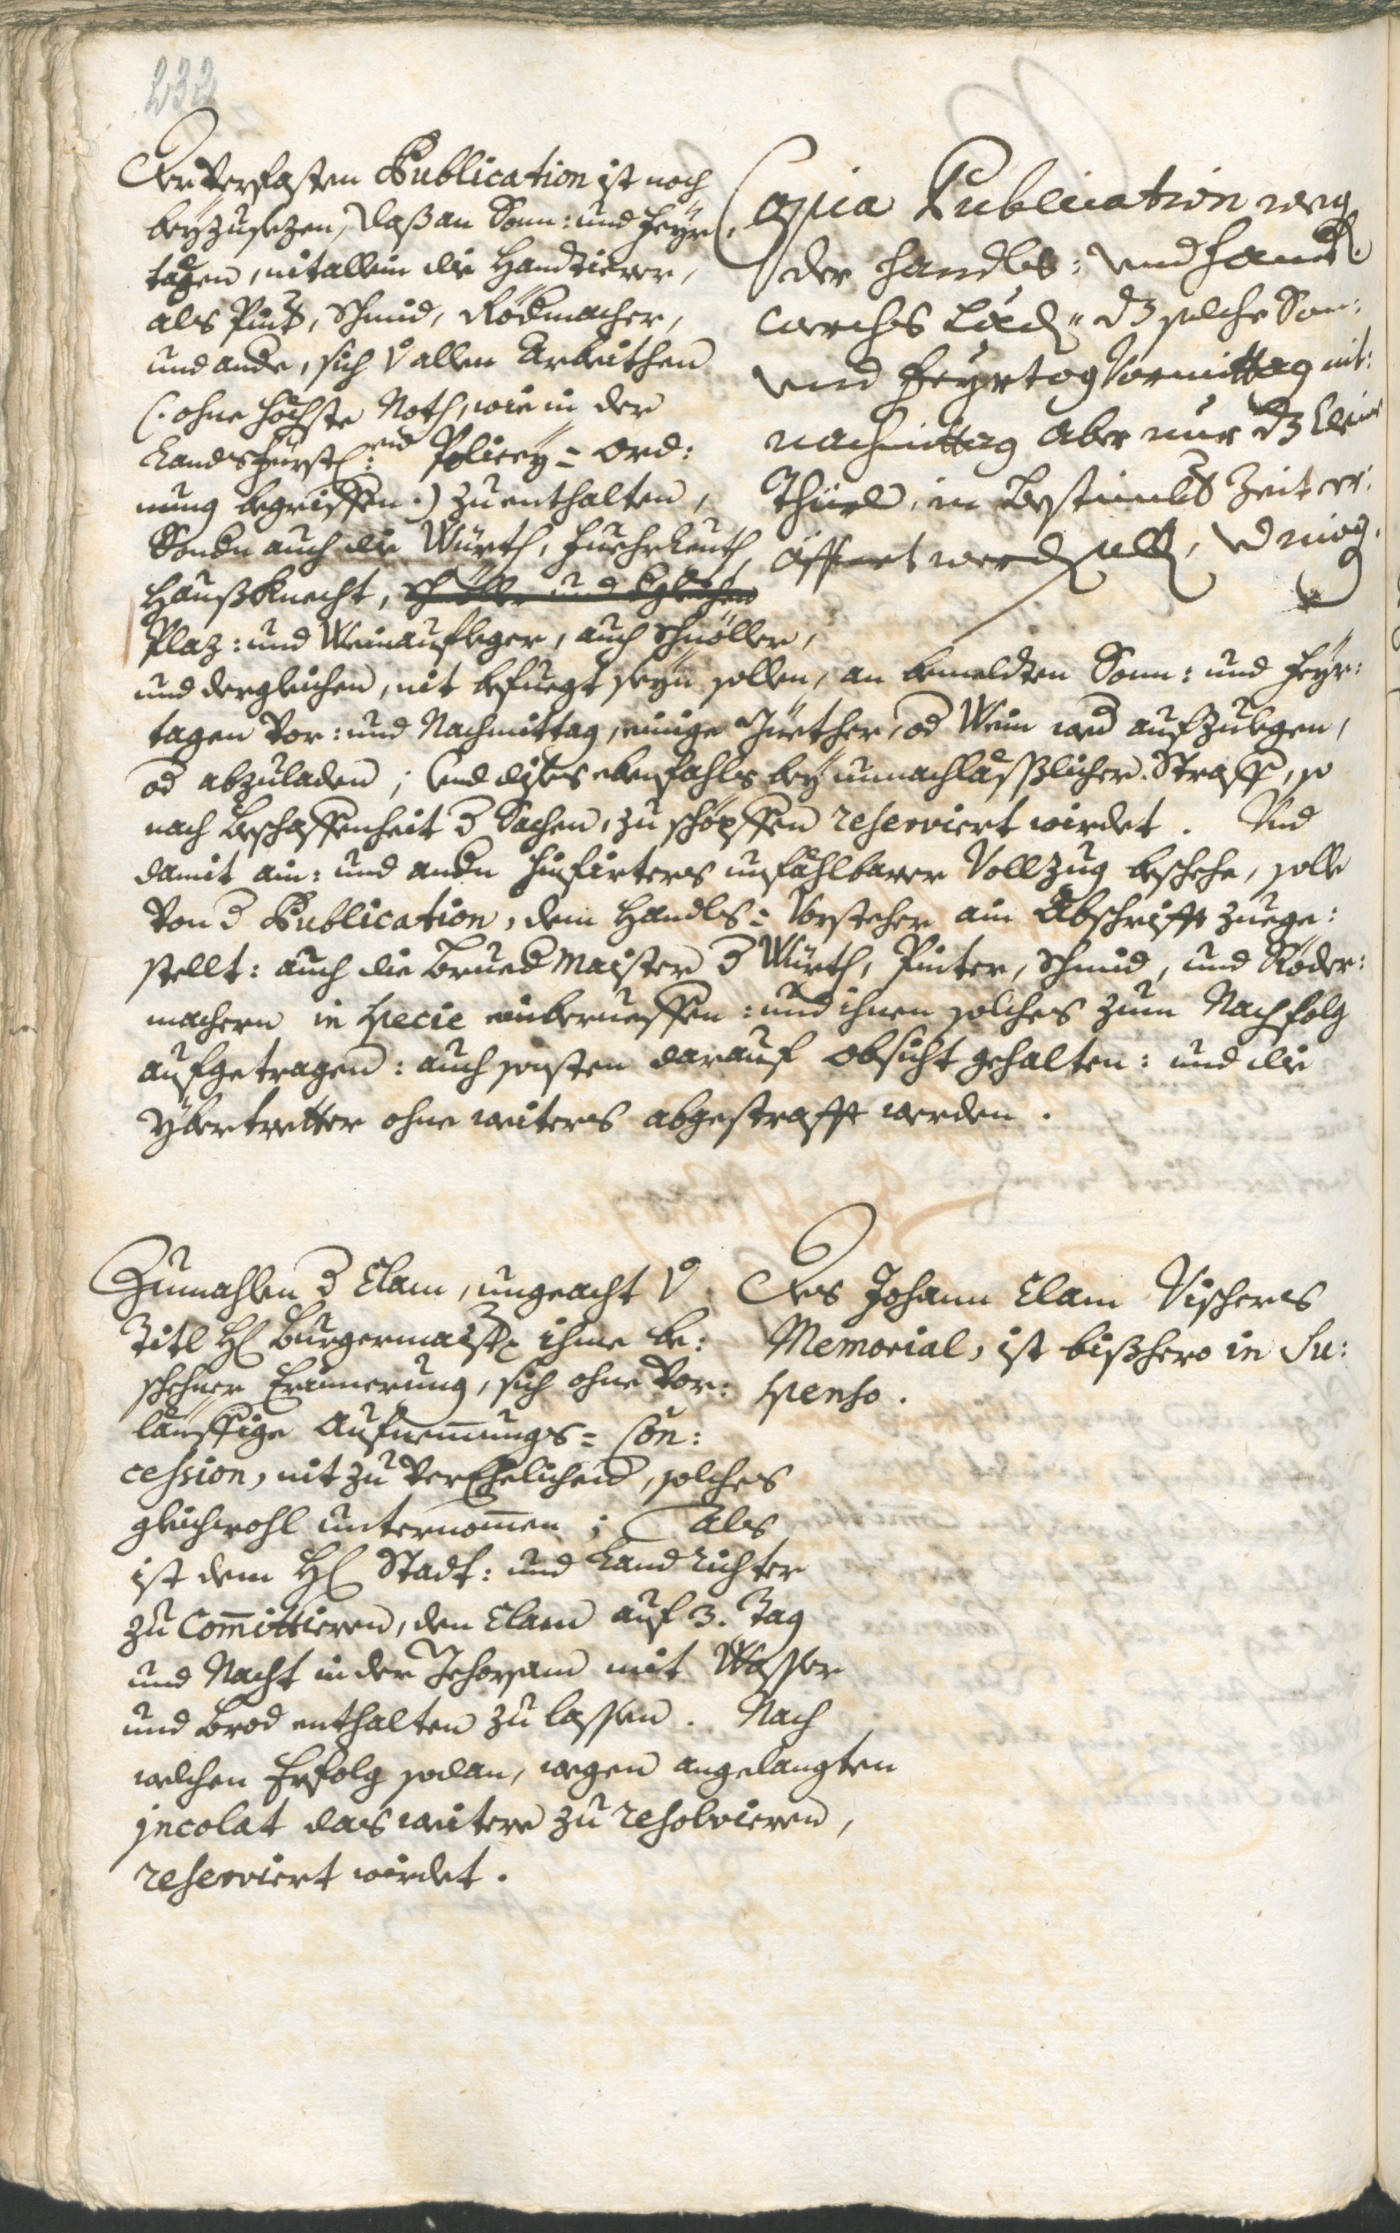 232
Der verfasten Publication ist noch
beyzusezen, daß an Sonn: und Feyr:
tagen, nit allein die Handtierer,
als Pint, Schmid, Rödmacher,
und ande, sich v allen Arbeithen
(: ohne höchste Noth, wie in der
Landsfürstl: und Policey= Ord:
nung begriffen :) zu enthalten,
Sondn auch die Würth, Fuehrleuth,
Haußknecht,
Plaz: und Weinaufleger, auch Schnöller,
und dergleichen, nit befuegt seyn sollen, an bemeldten Sonn: und Feyr:
tagen Vor: und Nachmittag, einige Güether, od Wein wed aufzulegen,
od abzuladen; und dises ebenfahls bey unnachläßlicher Straff, so
nach Beschaffenheit d Sachen, zu schöpffen reserviert wirdet. Und
damit ain: und andn hinfirters unfählbarer Vollzug beschehe, solle
von d Publication, dem Handls= Vorsteher ain Abschrifft zuege:
stellt: auch die Brued Maister d Würth, Pinter, Schmid, und Röder:
machern in specie einberueffen: und ihnen solches zum Nachfolg
aufgetragen: auch sonsten darauf obsicht gehalten: und die
ybertretter ohne weiters abgestrafft werden.
Copia Publication weg
der Handls: und Handt
werchs Läd, dz solche Son:
und Feyrtag Vormittag nit:
nachmittag aber nur dz kleine
Thürl, in bestimbt Zeit er:
öffnet werd soll, vnd mög.
Zumahlen d Clam, ungeacht v
Titl H Burgermaist ihme be:
schehner Erinnerung, sich ohne Vor:
läuffige Aufnemungs= Con:
cession, nit zu verEhelichen, solches
gleichwohl unternomen; Als
ist dem H Stadt: und Landrichter
zu Comittieren, den Clam auf 3. Tag
und Nacht in der Gehorsam mit Wasser
und Brod enthalten zu lassen. Nach
welchen Erfolg sodan, wegen angelangten
jncolat das weitere zu resolvieren,
reserviert wirdet.
Des Johann Clam Vischers
Memorial, ist bißhero in Su:
spenso.